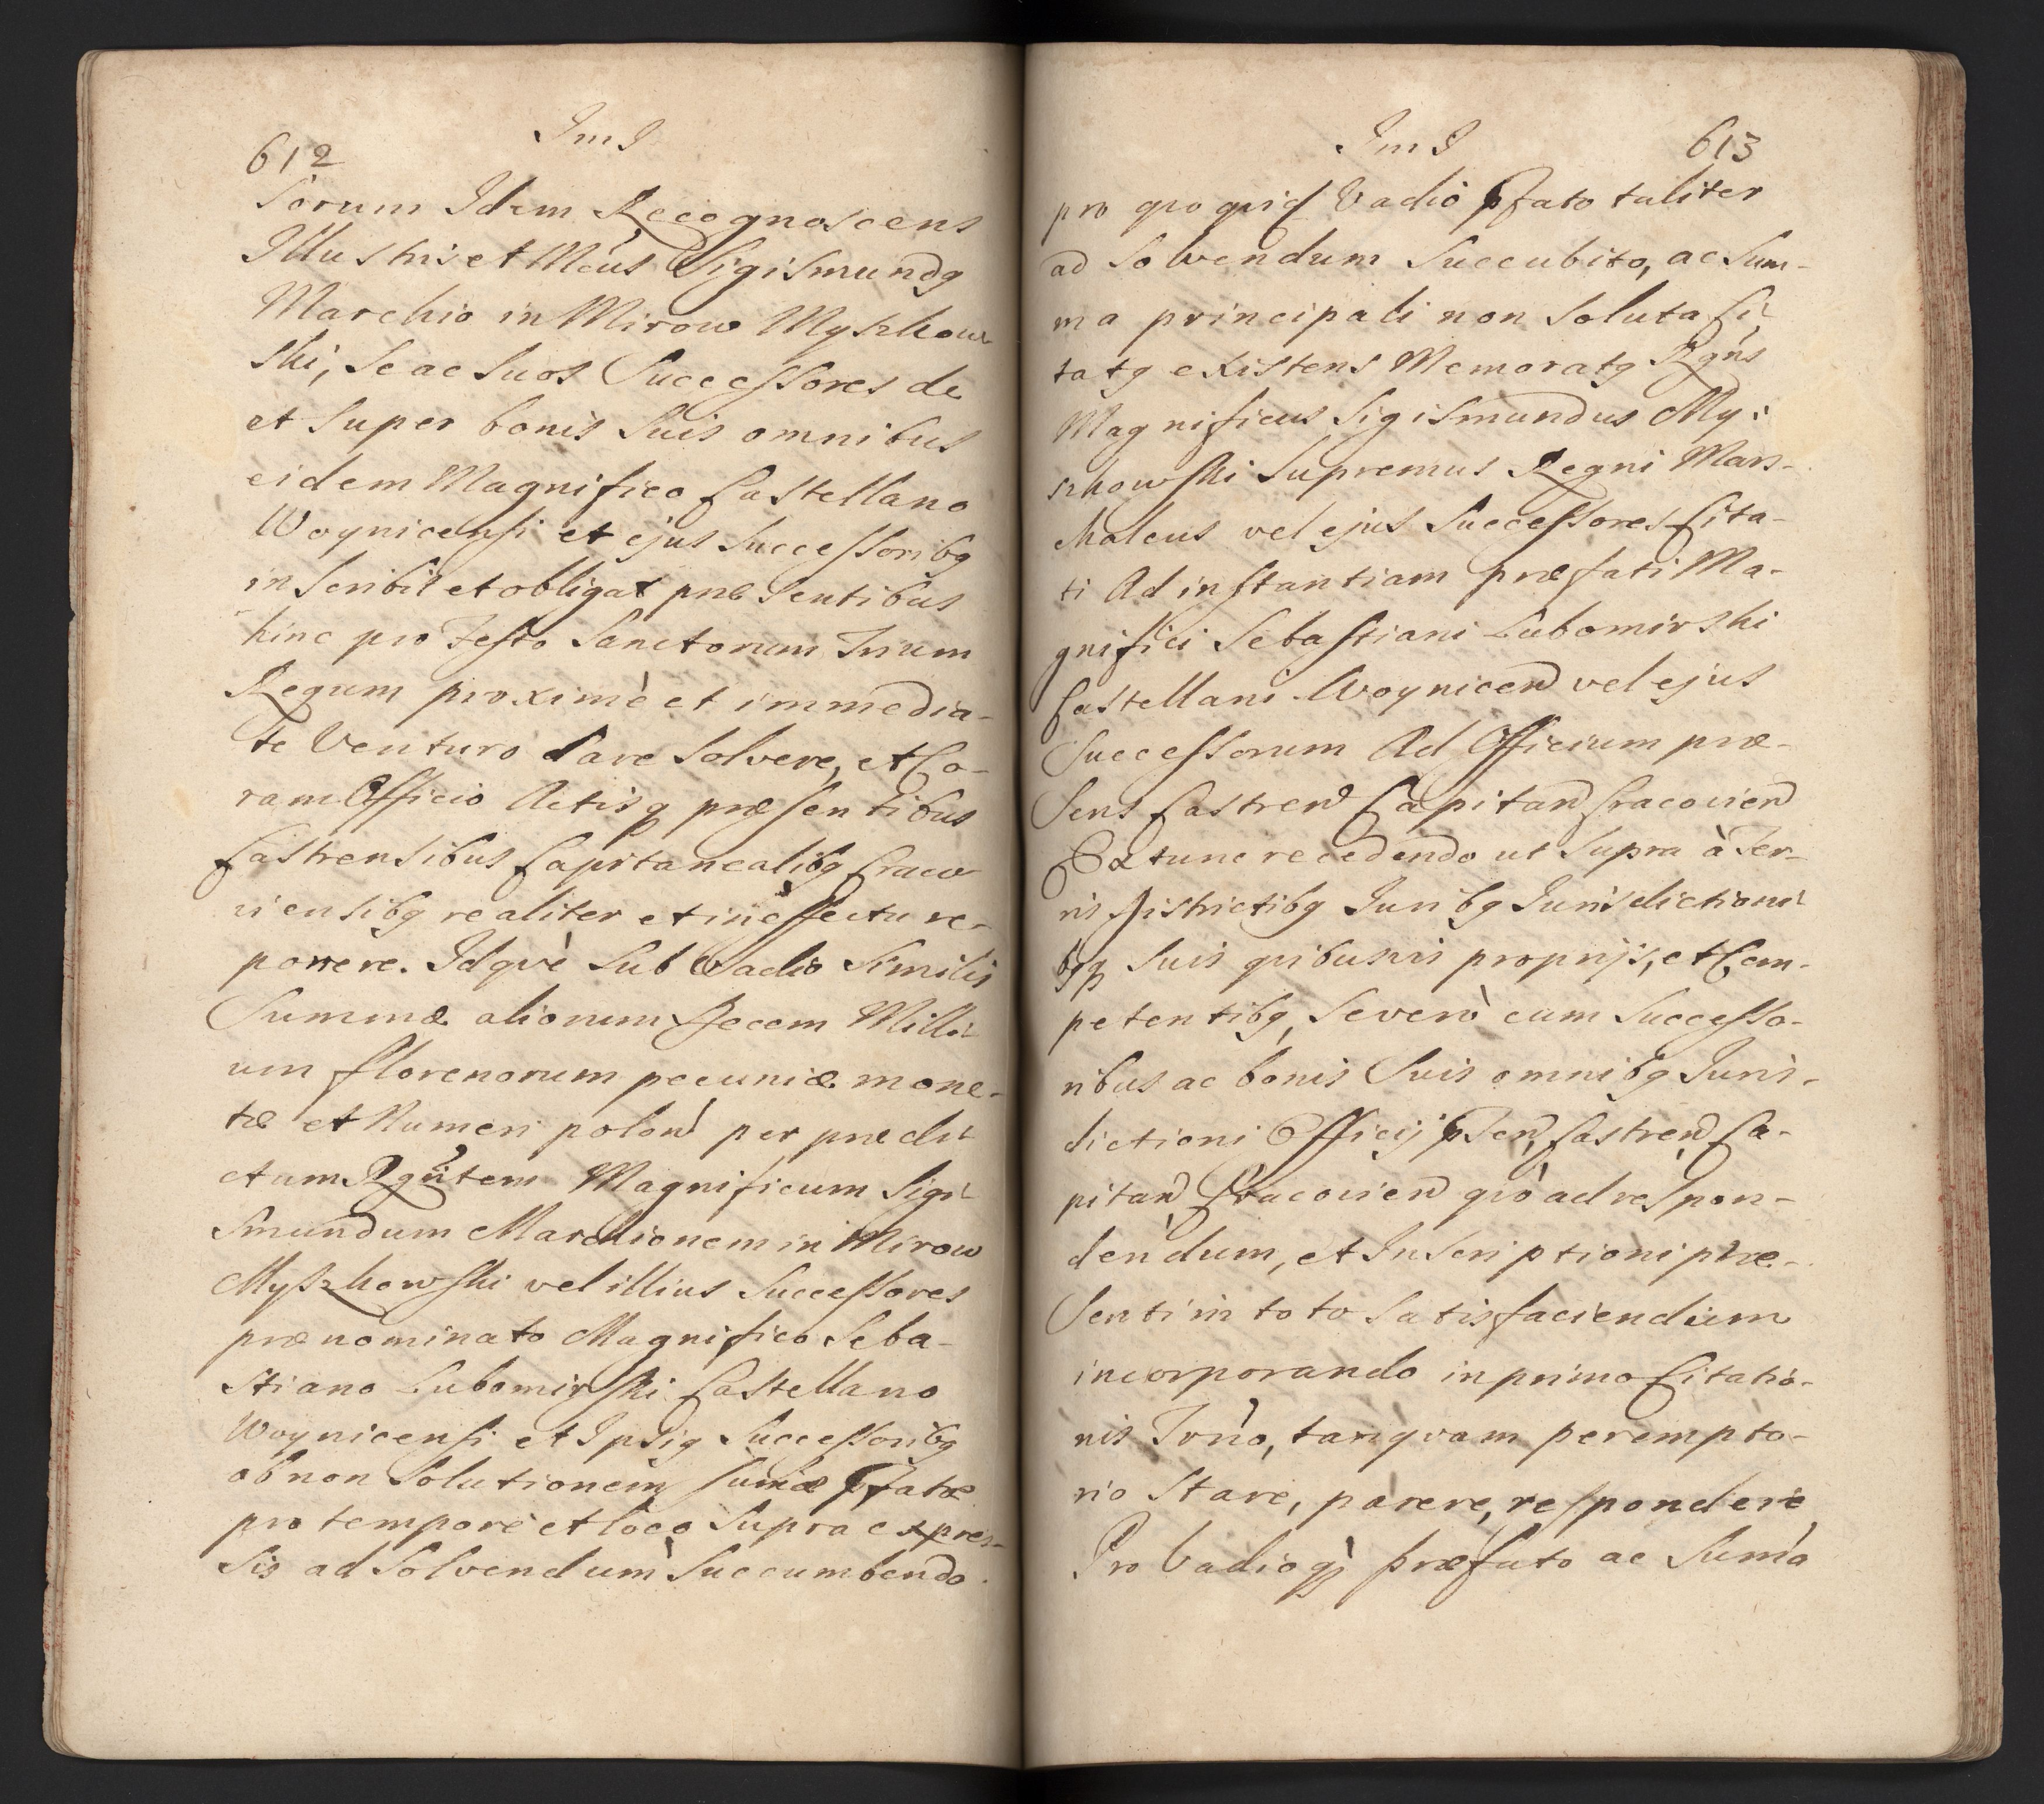 612
ImJ
sorum Idem Recognoscens
Illustris et Mcus Sigismundq
Marchio in Mirow Myszkow
ski, se ac suos Successores de
et super bonis suis omnibus
eidem Magnifico Castellano
Woynicensi et ejus Successoribq
inscribit et obligat præsentibus
hinc pro Festo Sanctorum Trium
Regum proximè et immedia-
te Venturo dare solvere, et Co-
ram Officio Actisq præsentibus
Castrensibus Capitanealibq Craco
viensibq realiter et in effectu re-
ponere. Idqvè sub Vadio similis
Summæ aliorum Decem Milli
um florenorum pecuniæ mone-
tæ et Numeri polon per prædi
ctum Rgñtem Magnificum Sigi
smundum Marchionem in Mirow
Myszkowski vel illius Successores
prænominato Magnifico Seba-
stiano Lubomirski Castellano
Woynicensi et Ipsiq Successoribq
ob non Solutionem sumæ pfatæ
pro tempore et loco supra expres-
sis ad solvendum succumbendo.
ImJ
613
pro qvo qvid Vadio pfato taliter
ad solvendum succubito, ac Sum-
ma principali non soluta Ci
tatq existens Memoratq Rgns
Magnificus Sigismundus My-
szkowski Supremus Regni Mars-
chalcus vel ejus Successores Cita-
ti Ad instantiam præfati Ma-
gnifici Sebastiani Lubomirski
Castellani Woynicen vel ejus
Successorum Ad Officium præ-
sens Castren Capitan Cracovien
Ex tunc recedendo ut supra à Ter-
ris Districtibq Juribq Jurisdictioni
bqq suis qvibusvis proprijs, et Com-
petentibq, se verò cum Successo-
ribus ac bonis Suis omnibq Juris-
dictioni Officij psen, Castren, Ca-
pitan, Cracovien qvò ad respon-
dendum, et Inscriptioni præ-
senti in toto satisfaciendum
incorporando in primo Citatio-
nis Trno, tanqvam perempto-
rio Stare, parere, respondere
Pro Vadioqq præfato ac Suma